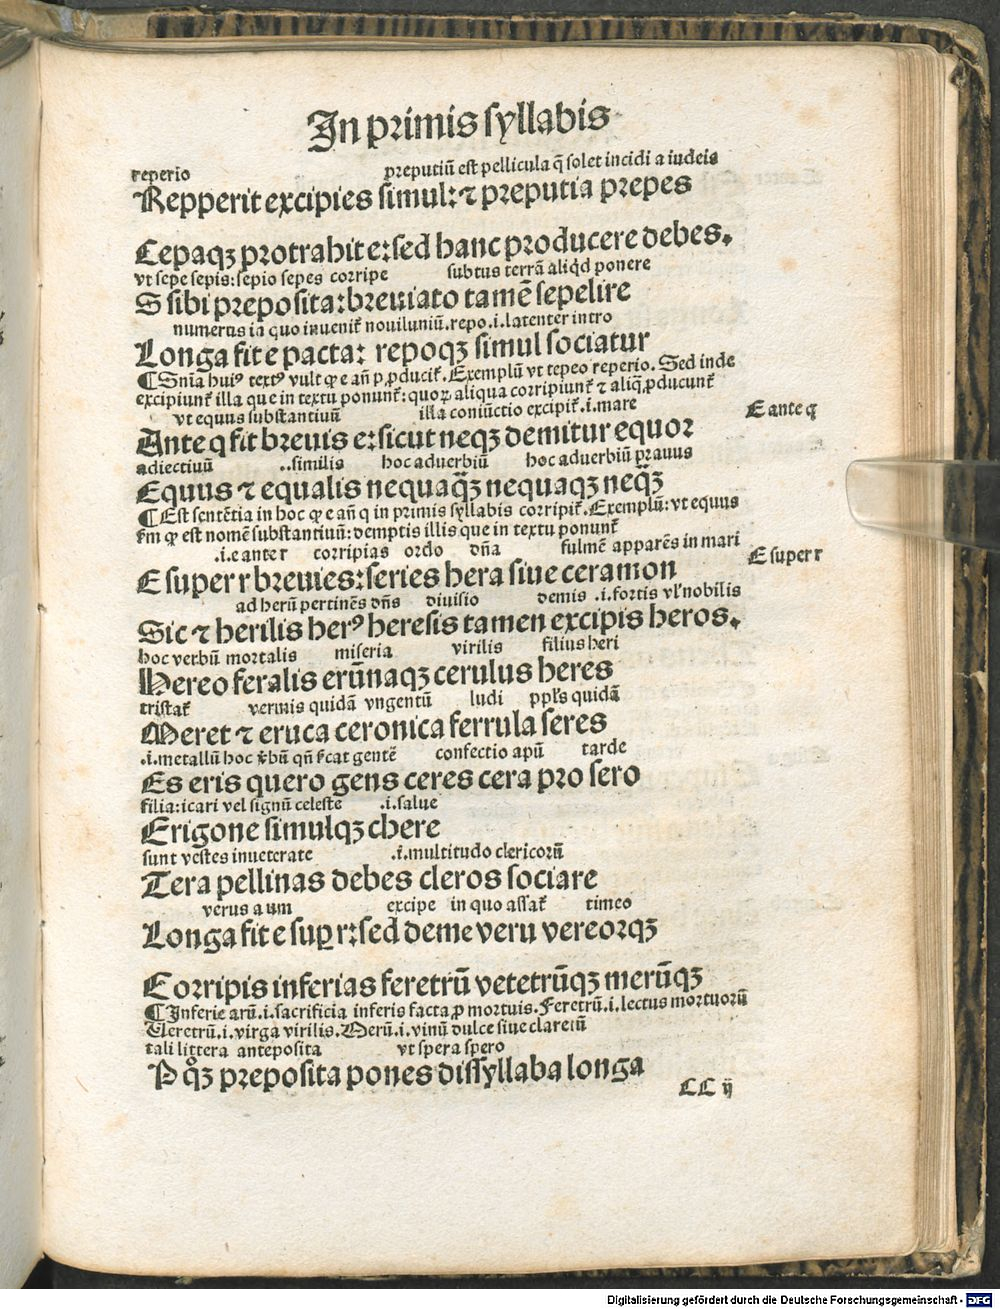 In primis syllabis
reperio preputiū est pellicula q̄ solet incidi a iudeis
Repperit excipies simul: ⁊ preputia prepes
Cepaqꝫ protrahit e: sed hanc producere debes.
vt sepe sepis: sepio sepes corripe subtus terrā aliqͥd ponere
S sibi preposita: breuiato tamē sepelire
numerus ia quo inuenit᷑ nouiluniū. repo .i. latenter intro
Longa fit e pacta: repoqꝫ simul sociatur
¶ Snīa huiꝰ textꝰ vult ꝙ e añ p ꝓducit᷑. Exemplū vt tepeo reperio. Sed inde
excipiunt᷑ illa que in textu ponunt᷑: quoꝝ aliqua corripiunt᷑ ⁊ aliq̄ ꝓducunt᷑
vt equus substantiuū illa coniūctio excipit᷑ .i. mare
E ante q
Ante q fit breuis e: sicut neqꝫ demitur equor
adiectiuū ..similis hoc aduerbiū hoc aduerbiū prauus
Equus ⁊ equalis nequaq̄ꝫ nequaqꝫ neq̄ꝫ
¶ Est sentētia in hoc ꝙ e añ q in primis syllabis corripit᷑. Exemplū: vt equus
ẜm ꝙ est nomē substantiuū: demptis illis que in textu ponunt᷑
.i. e ante r corripias ordo dña fulmē apparēs in mari
E super r
E super r breuies: series hera siue ceramon
ad herū pertinēs dñs diuisio demis .i. fortis vl' nobilis
Sic ⁊ herilis herꝰ heresis tamen excipis heros.
hoc verbū mortalis miseria virilis filius heri
Hereo feralis erūnaqꝫ cerulus heres
tristat᷑ vermis quidā vngentū ludi ppl's quidā
Meret ⁊ eruca ceronica ferrula seres
.i. metallū hoc v̾bū qñ s̾cat gentē confectio apū tarde
Es eris quero gens ceres cera pro sero
filia: icari vel signū celeste .i. salue
Erigone simulqꝫ chere
sunt vestes inueterate .i. multitudo clericorū
Tera pellinas debes cleros sociare
verus a um excipe in quo assat᷑ timeo
Longa fit e suꝑ r: sed deme veru vereorqꝫ
Corripis inferias feretrū vetetrūqꝫ merūqꝫ
¶ Inferie arū .i. sacrificia inferis facta ꝓ mortuis. Feretrū .i. lectus mortuorū
Veretrū .i. virga virilis. Merū .i. vinū dulce siue claretū
tali littera anteposita vt spera spero
P qͦꝫ preposita pones dissyllaba longa
CC ij
Digitalisierung gefördert durch die Deutsche Forschungsgemeinschaft - DFG